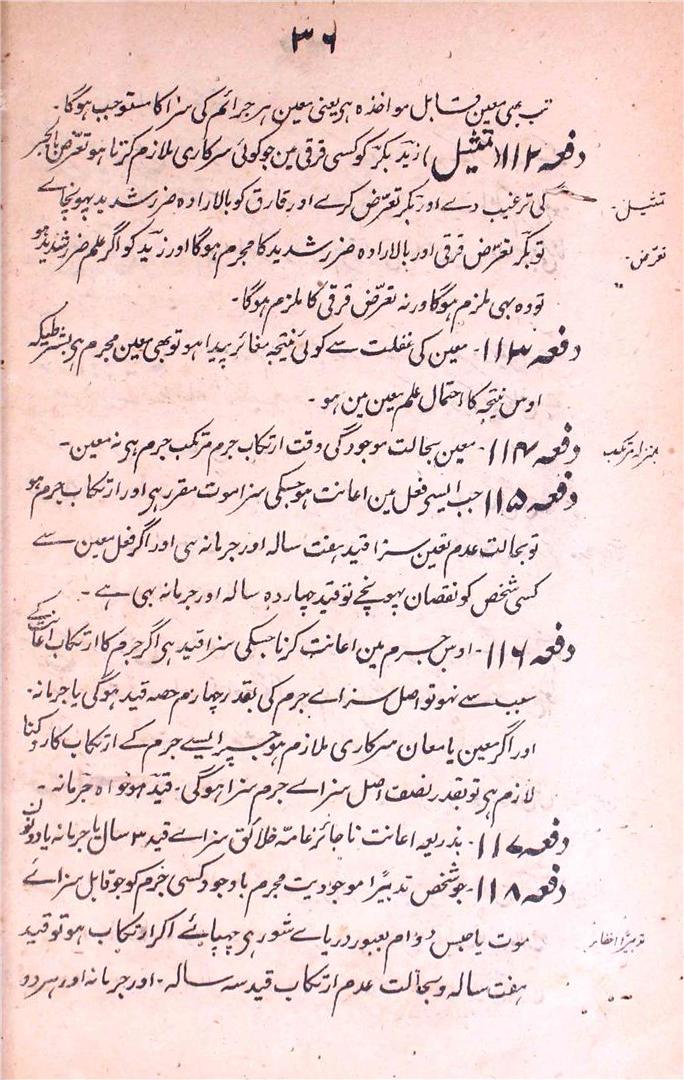 ۳۶
تب بھی معین قابل مواخذہ ہی یعنی معین ہر جرائم کی سزا کا مستوجب ہوگا۔
دفعہ ۱۱۲ (تمثیل) زید بکر کو کسی قرقی مین جو کوئی سرکاری ملازم کرتا ہو تعرض بالجبر
کی ترغیب دے اور بکر تعرّض کرے اور قارق کو بالارادہ ضرر شدید پہونچاے
تمثیل۔
تو بکر تعرّض قرقی اور بالارادہ ضرر شدید کا مجرم ہوگا اور زید کو اگر علم ضرر شدید ہو
تعرّض۔
تو وہ بھی ملزم ہوگا ورنہ تعرّض قرقی کا ملزم ہوگا۔
دفعہ ۱۱۳۔ معین کی غفلت سے کوئی نتیجہ مغائر پیدا ہو تو بھی معین مجرم ہی بشرطیکہ
اوس نتیجہ کا احتمال علم معین مین ہو۔
دفعہ ۱۱۴۔ معین بحالت موجودگی وقت ارتکاب جرم مرتکب جرم ہی نہ معین۔
بمنزلہ مرتکب
دفعہ ۱۱۵ جب ایسی فعل مین اعانت ہو جسکی سزا موت مقرر ہی اور ارتکاب جرم ہو
تو بحالت عدم تعین سزا قید ہفت سالہ اور جرمانہ ہی اور اگر فعل معین سے
کسی شخص کو نقصان پہونچے تو قید چاردہ سالہ اور جرمانہ بھی ہے۔
دفعہ ۱۱۶۔ اوس جرم مین اعانت کرنا جسکی سزا قید ہی اگر جرم کا ارتکاب اعانت کے
سبب سے نہو تو اصل سزاے جرم کی بقدر چہارم حصہ قید ہوگی یا جرمانہ۔
اور اگر معین یا معان سرکاری ملازم ہو جسپر ایسے جرم کے ارتکاب کا روکنا
لازم ہی تو بقدر نصف اصل سزاے جرم سزا ہوگی۔ قید ہو خواہ جرمانہ۔
دفعہ ۱۱۷۔ بذریعہ اعانت ناجائز عامہ خلائق سزاے قید ۳ سال یا جرمانہ یا دونون
دفعہ ۱۱۸۔ جو شخص تدبیرًا موجودیت مجرم باوجود کسی جرم کو جو قابل سزاے
موت یا حبس دوام بعبور دریاے شور ہی چھپائے اگر ارتکاب ہو تو قید
تدبیرًا اخفا۔
ہفت سالہ و بحالت عدم ارتکاب قید سہ سالہ۔ اور جرمانہ اور ہر دو